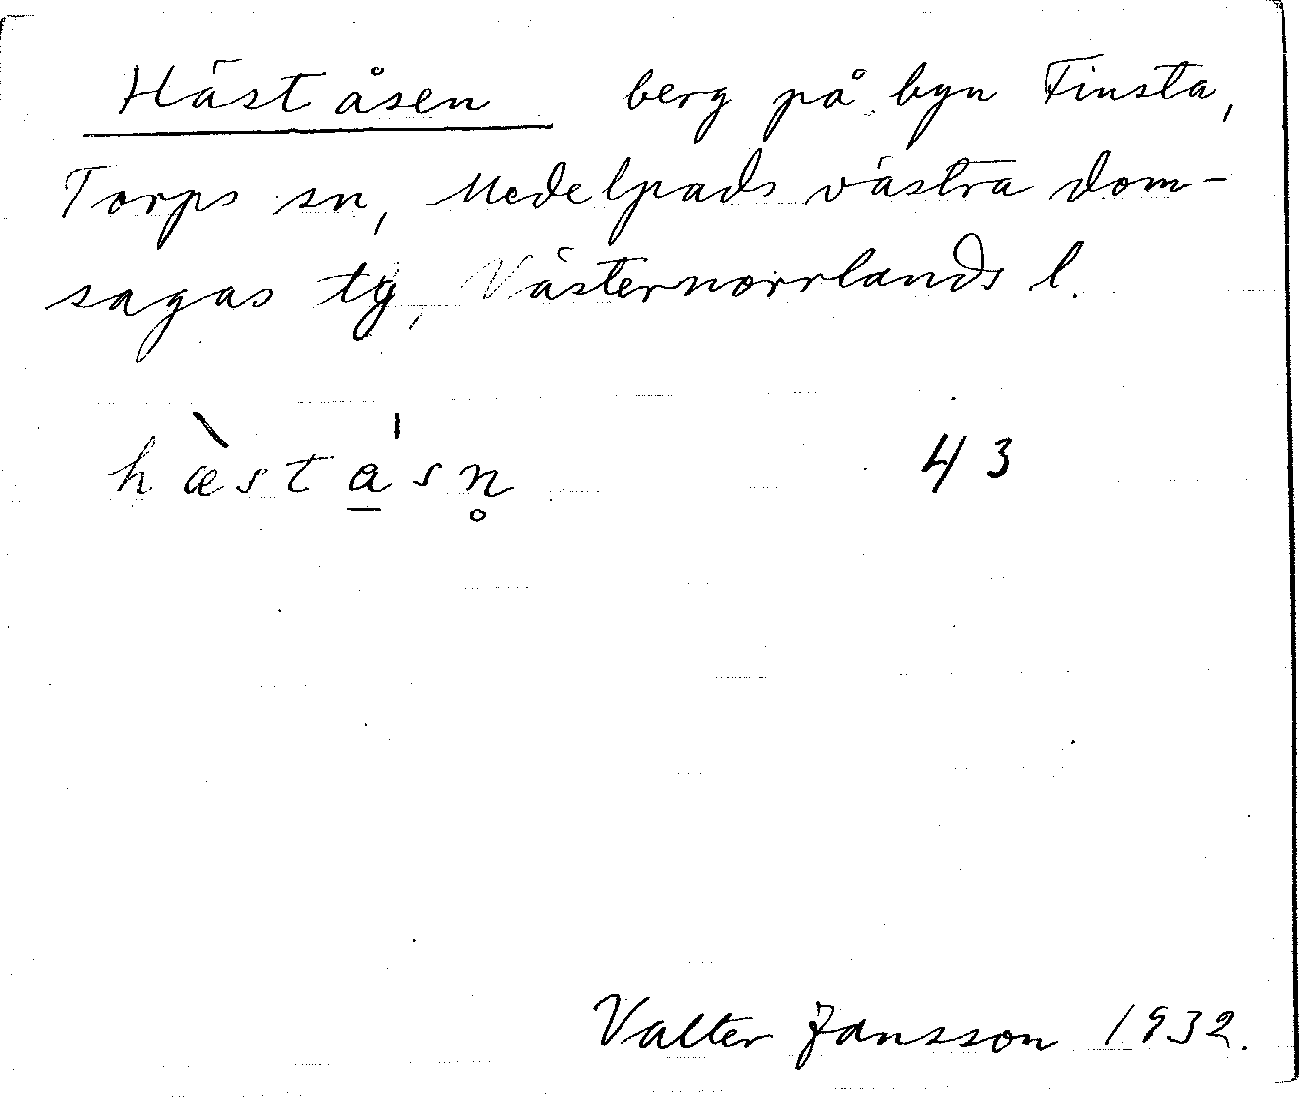 Häståsen berg på byn Finsta,
Torps sn, Medelpads västra dom-
sagas tg, Västernorrlands l.
hæ̀sta̲ˈsn̥ 43
Valter Jansson 1932.